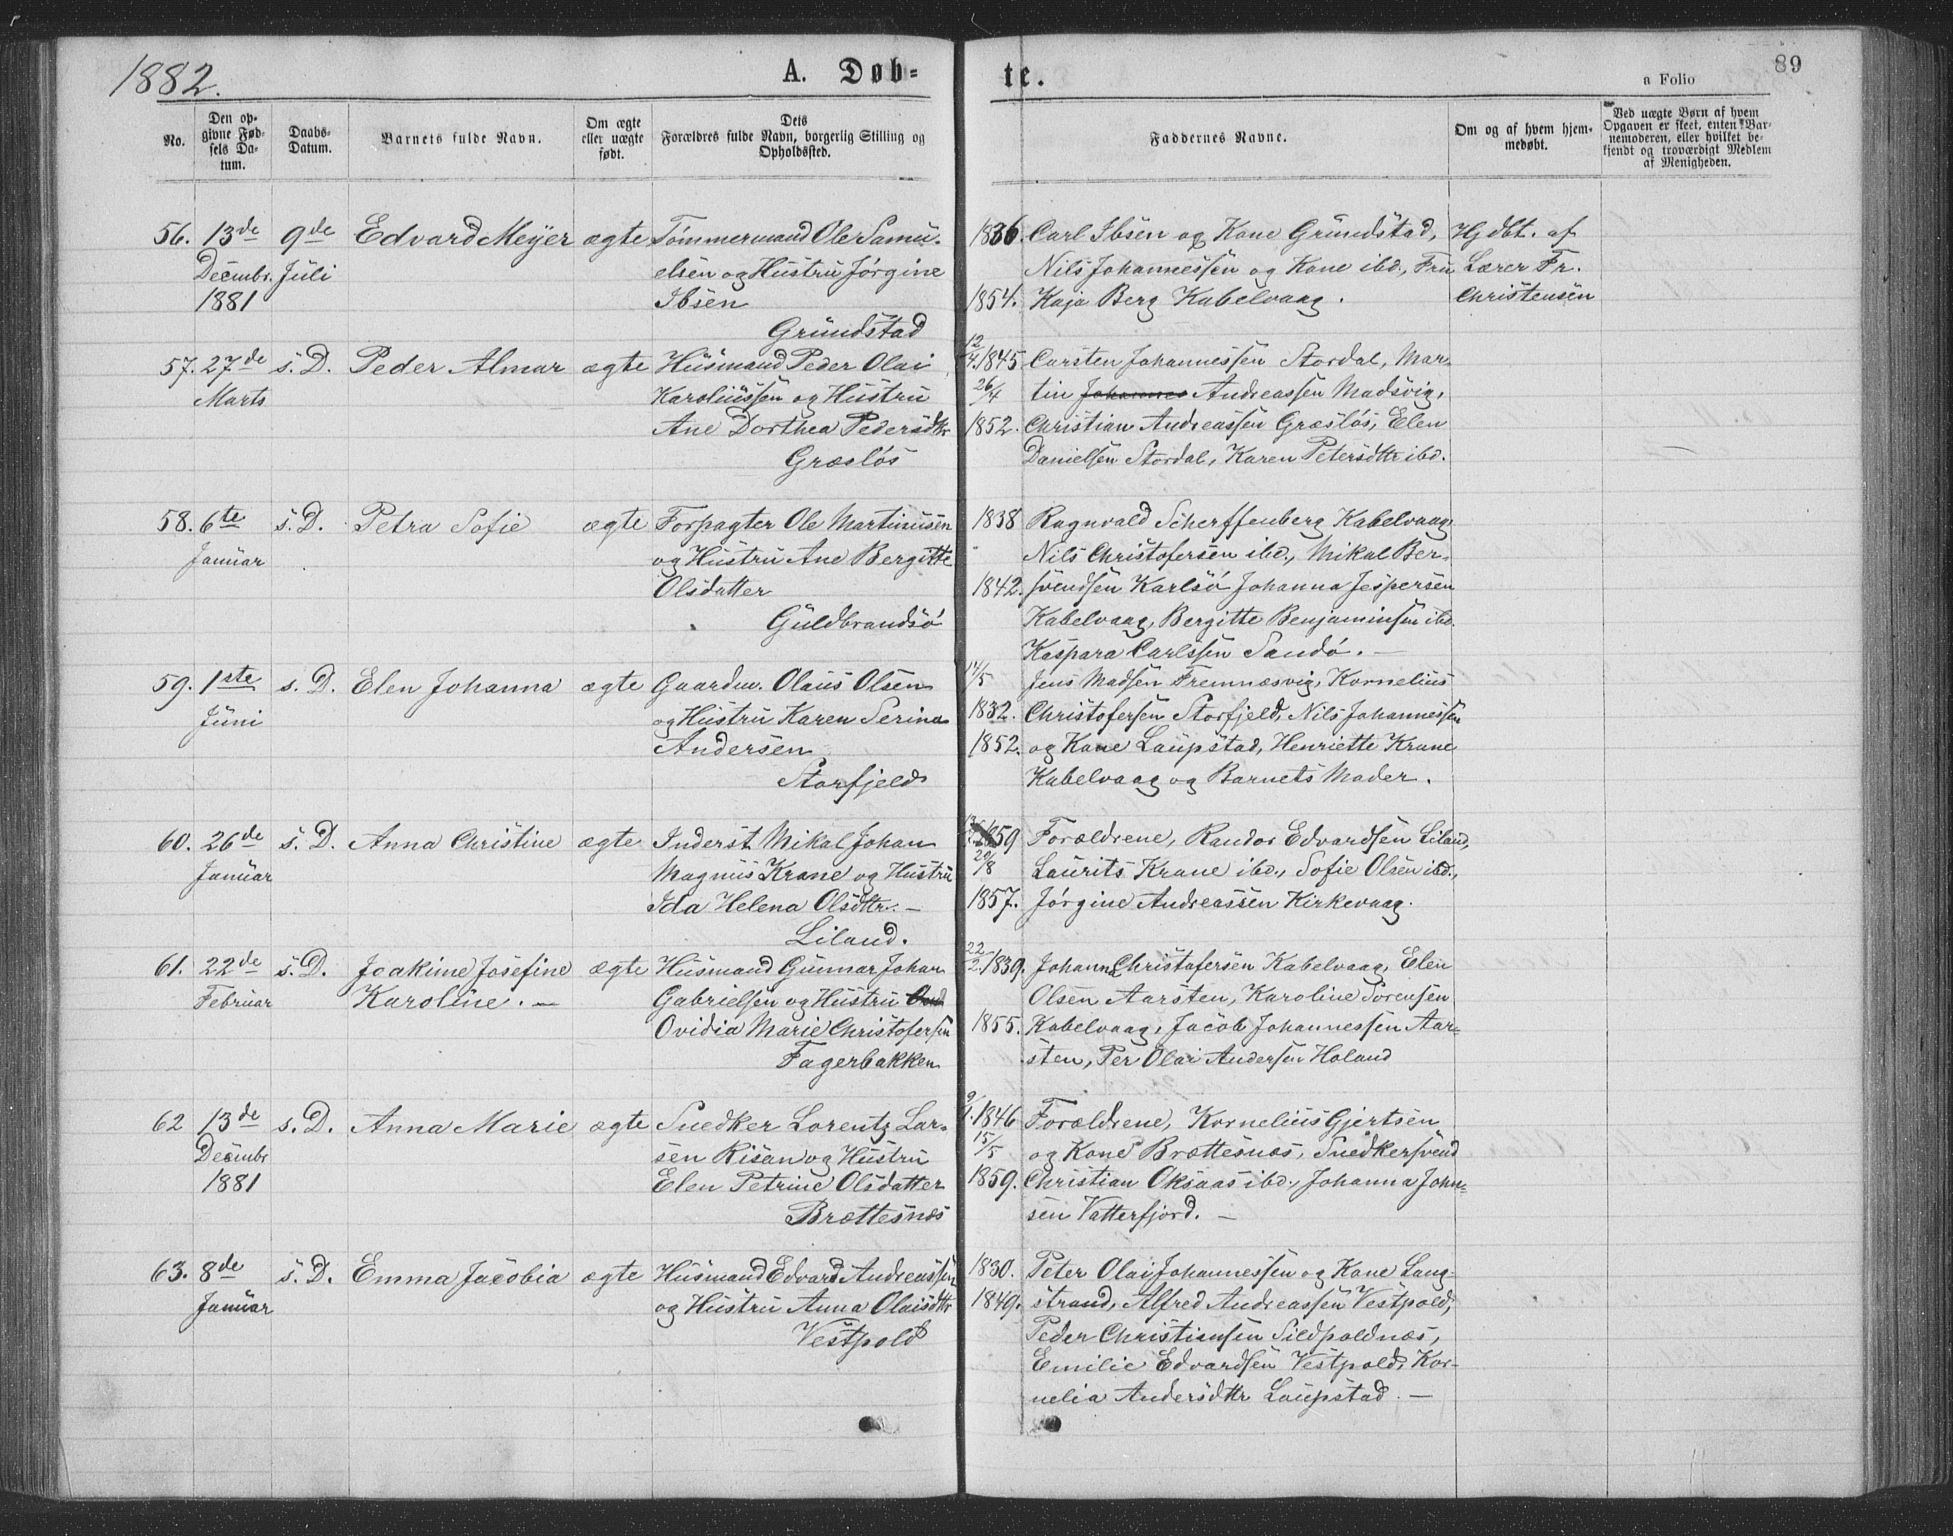 1882.
A. Døb-
te.
a Folio
89
No.
Den op-
givne Fød-
sels Da-
tum.
Daabs-
Datum.
Barnets fulde Navn.
Om ægte
eller uægte
født.
Dets
Forældres fulde Navn, borgerlig Stilling og
Opholdssted.
Faddernes Navne.
Om og af hvem hjem-
medøbt.
Ved uægte Børn af hvem
Opgaven er skeet, enten Bar-
nemoderen, eller hvilket be-
kjendt og troværdigt Medlem
af Menigheden.
56. 13de 9de Edvard Meyer ægte Tömmermand Ole Samu-
Decembr. Juli elsen og Hustru Jørgine
1881 Ibsen
Grundstad
1836. Carl Ibsen og Kone Grundstad, Hjdbt. af
Nils Johannessen og Kone ibd., Fru Lærer Fr.
1854. Kaja Berg Kabelvaag. Christensen
57. 27de s. D. Peder Almar ægte Husmand Peder Olai
Marts Karoliussen og Hustru
Ane Dorthea Pedersdtr
Græsløs
12/4. 1845 Carsten Johannessen Stordal, Mar-
26/4 tin Johannes Andreassen Madsvig,
1852. Christian Andreassen Græsløs, Elen
Danielsen Stordal, Karen Petersdttr ibd.
58. 6te s. D. Petra Sofie ægte Forpagter Ole Martinusen
Januar og Hustru Ane Bergitte
Olsdatter
Guldbrandsö
1838 Ragnvald Scherffenberg Kabelvaag,
Nils Christofersen ibd., Mikal Ber-
1842. svendsen Karlsö Johanna Jespersen
Kabelvaag, Bergitte Benjaminsen ibd.
Kaspara Carlssen Sandö. —
59. 1ste s. D. Elen Johanna ægte Gaardm. Olaus Olsen
Juni og Hustru Karen Serina
Andersen
Storfjeld
14/5 Jens Madsen Fremnæsvig, Kornelius
1832. Christofersen Storfjeld, Nils Johannessen
1852. og Kone Laupstad, Henriette Krane
Kabelvaag og Barnets Moder.
60. 26de s. D. Anna Christine ægte Inderst Mikal Johan
Januar Magnus Krane og Hustru
Ida Helena Olsdttr. —
Liland.
1859 Forældrene, Randor Edvardsen Liland,
29/8 Laurits Krane ibd., Sofie Olsen ibd.,
1857. Jørgine Andreassen Kirkevaag.
61. 22de s. D. Joakime Josefine ægte Husmand Gunnar Johan
Februar Karoline. — Gabrielsen og Hustru
Ovidia Marie Christofersen
Fagerbakken
22/2. 1839. Johan Christofersen Kabelvaag, Elen
Olsen Aarsten, Karoline Sörensen
1855. Kabelvaag, Jacob Johannessen Aar-
sten, Per Olai Andersen Holand
62 13de s. D. Anna Marie ægte Snedker Lorentz Lar-
Decembr sen Risan og Hustru
1881 Elen Petrine Olsdatter
Brættesnæs
9/9. 1846 Forældrene, Kornelius Gjertsen
15/5 og Kone Brættesnæs, Snedkersvend
1859. Christian Oksaas ibd., Johanna John-
sen Vatterfjord. —
63. 8de s. D. Emma Jacobia ægte Husmand Edvard Andreassen
Januar og Hustru Anna Olaisdttr
Vestpold
1830. Peter Olai Johannessen og Kone Lang-
1849. strand, Alfred Andreassen Vestpold,
Peder Christiansen Sildpoldnæs,
Emilie Edvardsen Vestpold, Kor-
nelia Andersdttr Laupstad. —